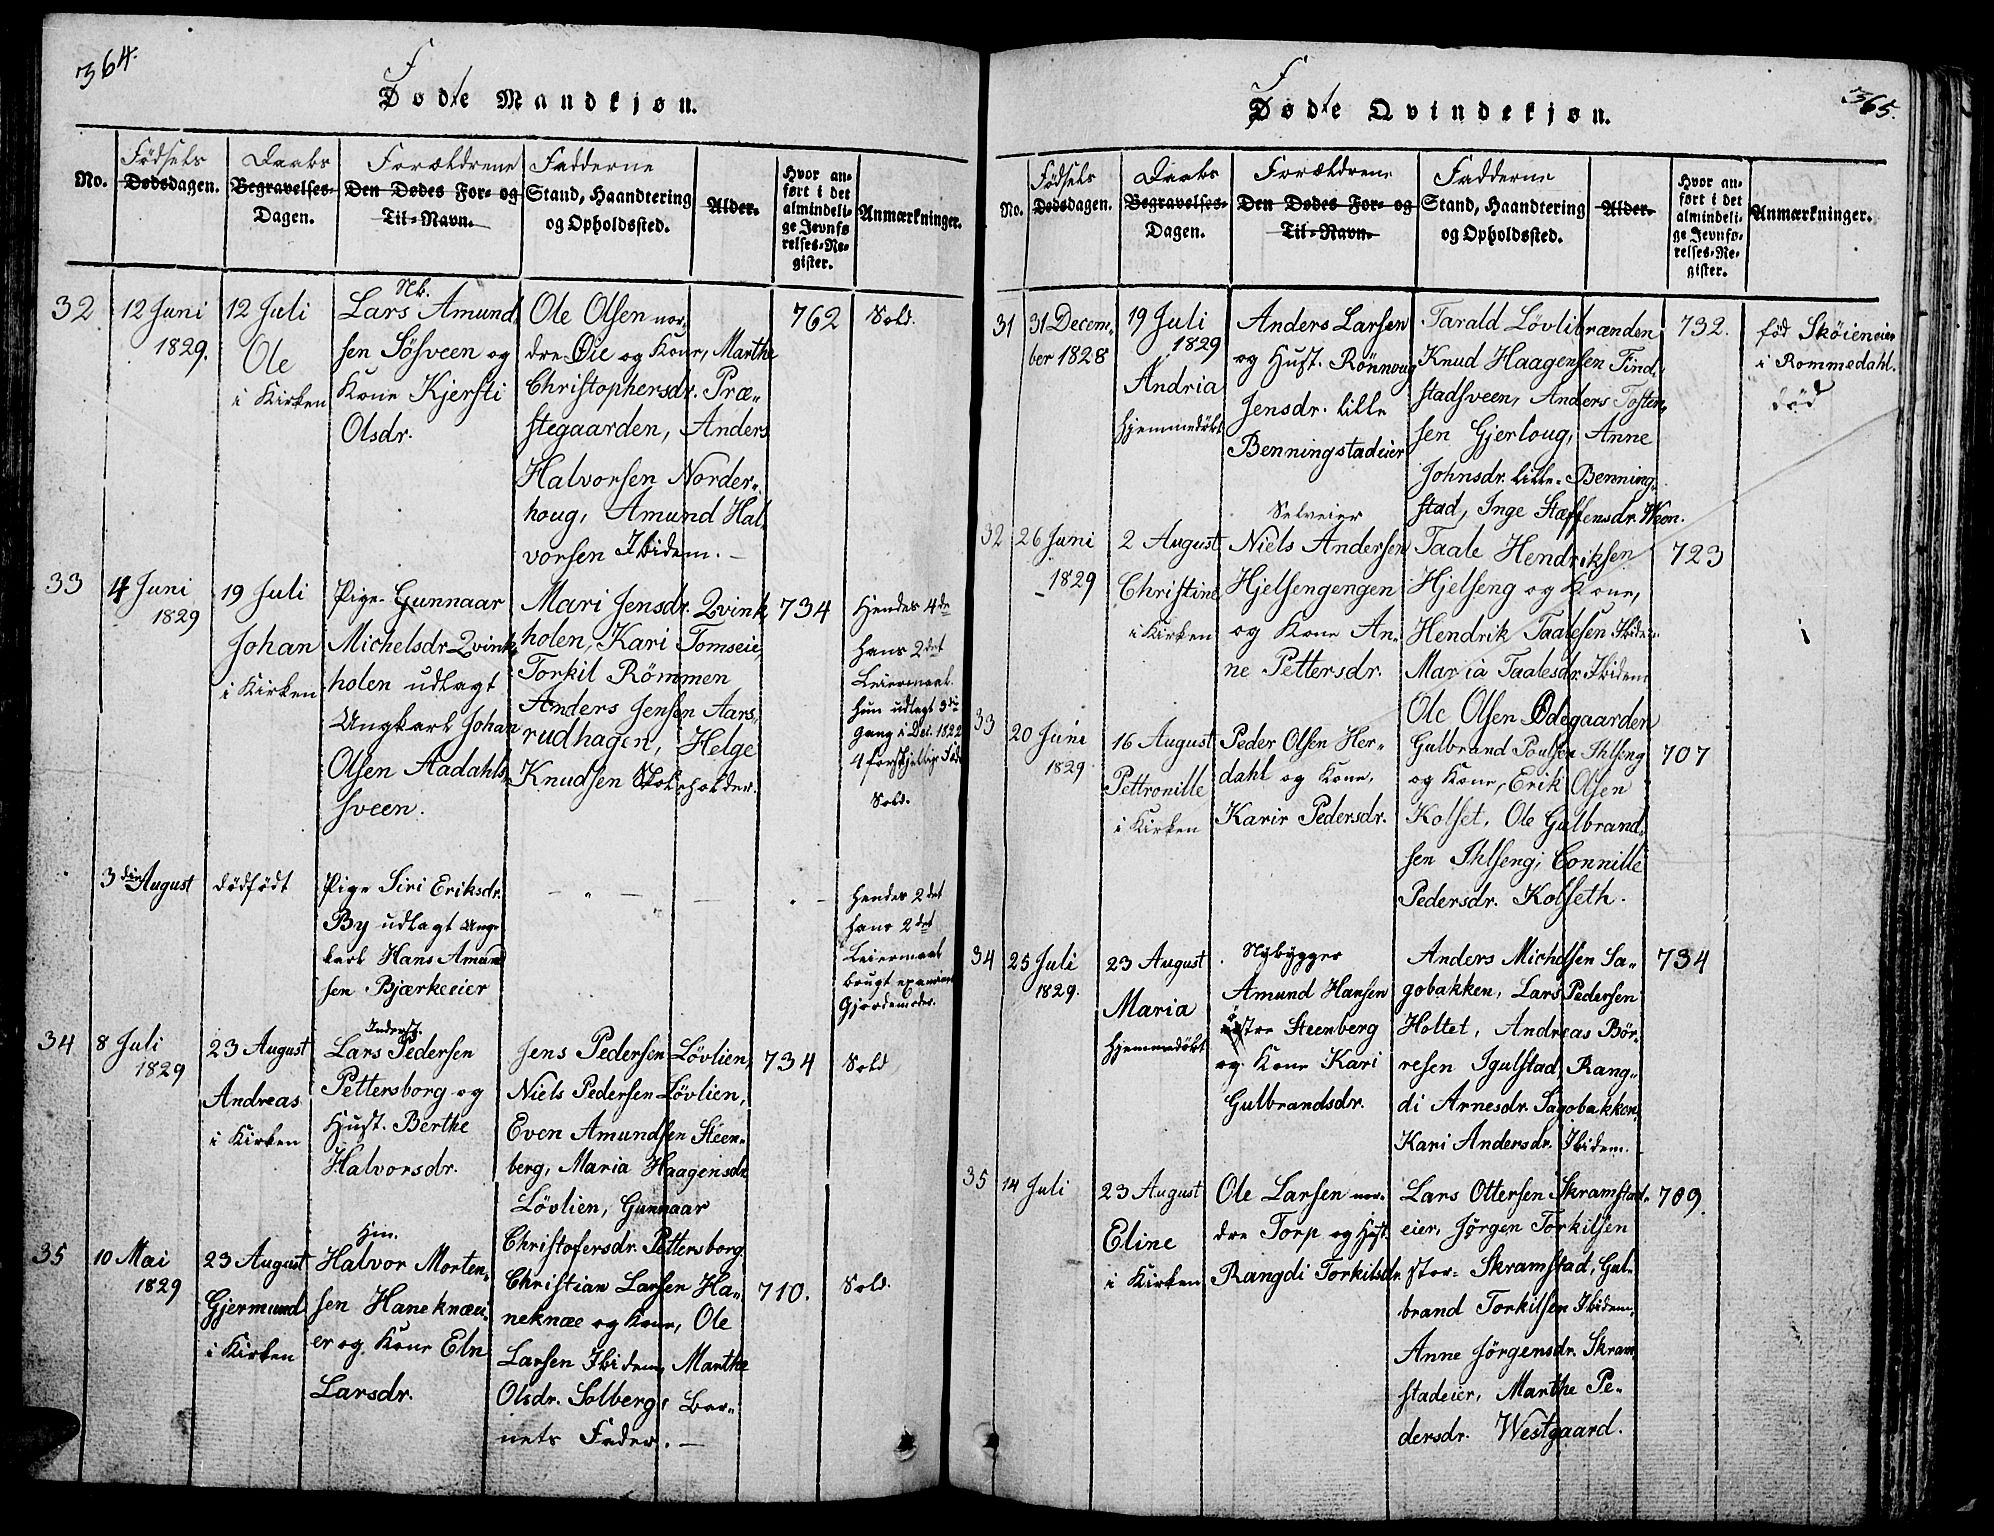 364.
Fødte Mandkjøn.
No.
Fødsels
Dødsdagen.
Daabs
Begravelses-
Dagen.
Forældrene
Den Dødes For- og
Til-Navn.
Fadderne
Stand, Haandtering
og Opholdssted.
Alder.
Hvor an-
ført i det
almindeli-
ge Jevnfø-
relses-Re-
gister.
Anmærkninger.
32
12 Juni
1829.
12 Juli
Ole
i Kirken
Nb.
Lars Amund
sen Sösveen og
Kone Kjersti
Olsdr.
Ole Olsen nor-
dre Öie og Kone, Marthe
Christophersdr. Præ-
stegaarden, Anders
Halvorsen Norder-
houg, Amund Hal-
vorsen Ibidem. -
762
Sold.
33
4 Juni
1829
19 Juli
Johan
i Kirken
Pige Gunnaar
Michelsdr Qvink-
holen udlagt
Ungkarl Johan
Olsen Aadahls-
sveen.
Mari Jensdr. Qvink-
holen, Kari Tomseie,
Torkil Römmen
Anders Jensen Aars-
rudhagen, Helge
Knudsen Skoleholder.
734
Hendes 4de
hans 2det
Leiermaal.
hun udlagt 3die
gang i Dec. 1822
4 forskjellige Fæd
Sold.
3die August
dödfödt
Pige Siri Eriksdr.
By udlagt Ung-
karl Hans Amun
sen Bjærkeeier
- " - - " -
Hendes 2det
hans 2det
Leiermaal
brugt examineret
Gjordemoder.
34
8 Juli
1829
23 August
Andreas
i Kirken
Inderst.
Lars Pedersen
Pettersborg og
Hust. Berthe
Halvorsdr.
Jens Pedersen Lövlien,
Niels Pedersen Lövlien,
Even Amundsen Steen-
berg, Maria Haagensdr
Lövlien, Gunnaar
Christofersdr. Pettersborg
734
Sold
35
10 Mai
1829
23 August
Gjermund
i Kirken
Hm.
Halvor Morten-
sen Haneknæei-
er og Kone Eln
Larsdr.
Christian Larsen Ha-
neknæe og Kone, Ole
Larsen Ibidem, Marthe
Olsdr. Solberg, Bar-
nets Fader. -
710.
Sold.
365.
Fødte Qvindekjøn.
No.
Fødsels
Dødsdagen.
Daabs
Begravelses-
Dagen.
Forældrene
Den Dødes For- og
Til-Navn.
Fadderne
Stand, Haandtering
og Opholdssted.
Alder.
Hvor an-
ført i det
almindeli-
ge Jevnfø-
relses-Re-
gister.
Anmærkninger.
31
31 Decem-
ber 1828
19 Juli
1829
Andria
Hjemmedöbt
Anders Larsen
og Hust. Rönnoug
Jensdr. lille
Benningstadeier
Tarald Lövlibrænden
Knud Haagensen Find-
stadsveen, Anders Tosten-
sen Gjerloug, Anne
Johnsdr. lille-Benning-
stad, Inge Stæffensdr. Weon.
732.
föd Sköieneier
i Rommedahl.
död
32
26 Juni
1829
2 August
Christine
i Kirken
Selveier
Niels Andersen
Hjelsengengen
og Kone An-
ne Pettersdr.
Taale Hendriksen
Hjelseng og Kone,
Hendrik Taalesen Ibidem
Maria Taalesdr. Ibidem
Ole Olsen Ödegaarden
723
33
20 Juni
1829
16 August
Pettronille
i Kirken
Peder Olsen Her-
dahl og Kone,
Karir Pedersdr.
Gulbrand Poulsen Ihlseng
og Kone, Erik Olsen
Kolset, Ole Gulbrand-
sen Ihlseng, Connille
Pedersdr. Kolseth.
707
34
25 Juli
1829.
23 August
Maria
Hjemmedöbt
Nybygger
Amund Hansen
östre Steenberg
og Kone Kari
Gulbrandsdr.
Anders Michelsen Sa-
gobakken, Lars Pedersen
Holtet, Andreas Bör-
resen Igulstad, Rang-
di Arnesdr. Sagobakken,
Kari Andersdr. Ibidem.
734
35
14 Juli
23 August
Eline
i Kirken
Ole Larsen nor-
dre Torp og Hust.
Rangdi Torkilsdr
Lars Ottersen Skramstad-
eier, Jörgen Torkilsen
stor- Skramstad, Gul-
brand Torkilsen Ibidem,
Anne Jörgensdr. Skram-
stadeier, Marthe Pe-
dersdr. Westgaard.
709.